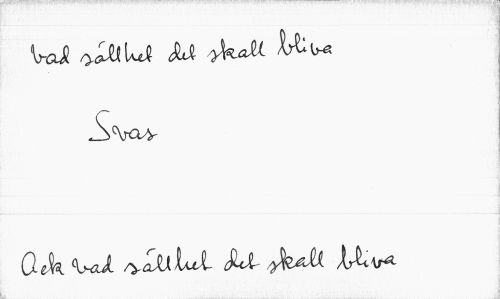 Vad sällhet det skall bliva
Svas
Ack vad sällhet det skall bliva